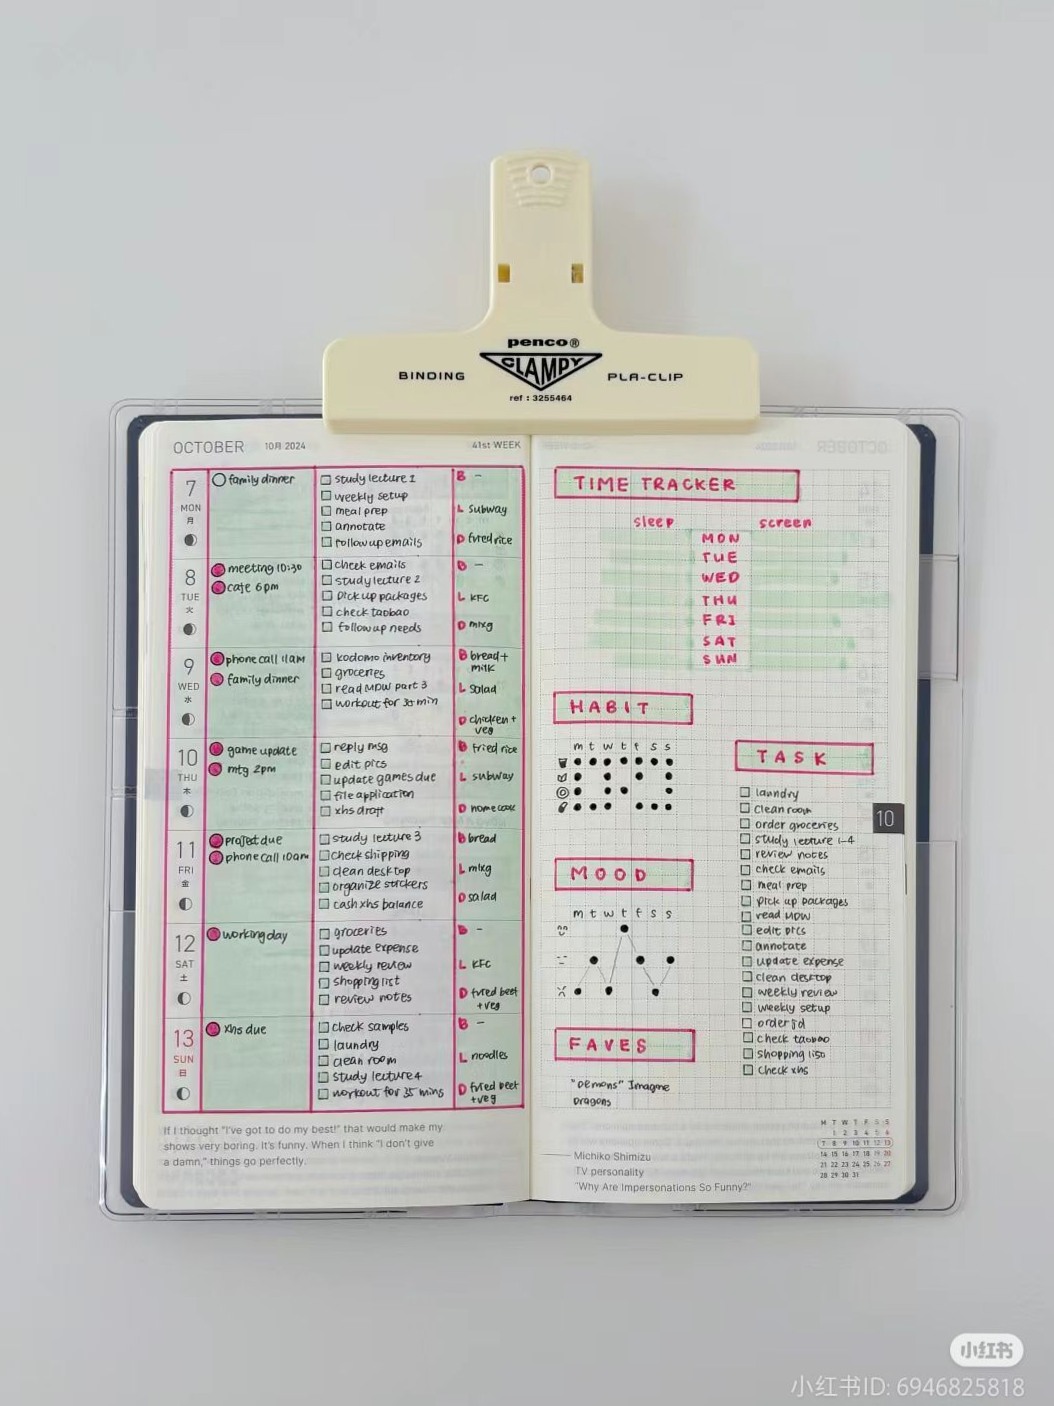 penco®
CLAMPY
BINDING
PLA-CLIP
ref : 3255464
OCTOBER 10月 2024 41st WEEK
7
MON
月
family dinner
study lecture 1
weekly setup
meal prep
annotate
follow up emails
B -
L subway
D fried rice
8
TUE
火
meeting 10:30
cafe 6pm
check emails
study lecture 2
pick up packages
check taobao
follow up needs
B -
L KFC
D mlxg
9
WED
水
phone call 11am
family dinner
kodomo inventory
groceries
read MDW part 3
workout for 35 min
B bread +
milk
L salad
D chicken +
veg
10
THU
木
game update
mtg 2pm
reply msg
edit pics
update games due
file application
xhs draft
B fried rice
L subway
D home cook
11
FRI
金
project due
phone call 10am
study lecture 3
check shipping
clean desktop
organize stickers
cash xhs balance
B bread
L mlxg
D salad
12
SAT
土
working day
groceries
update expense
weekly review
shopping list
review notes
B -
L KFC
D fried beef
+veg
13
SUN
日
xhs due
check samples
laundry
clean room
study lecture 4
workout for 35 mins
B -
L noodles
D fried beef
+veg
If I thought "I've got to do my best!" that would make my
shows very boring. It's funny. When I think "I don't give
a damn," things go perfectly.
TIME TRACKER
sleep screen
MON
TUE
WED
THU
FRI
SAT
SUN
HABIT
m t w t f s s
MOOD
m t w t f s s
FAVES
"Demons" Imagine
Dragons
TASK
laundry
clean room
order groceries
study lecture 1-4
review notes
check emails
meal prep
pick up packages
read MDW
edit pics
annotate
update expense
clean desktop
weekly review
weekly setup
order jd
check taobao
shopping list
check xhs
10
Michiko Shimizu
TV personality
"Why Are Impersonations So Funny?"
M T W T F S S
1 2 3 4 5 6
7 8 9 10 11 12 13
14 15 16 17 18 19 20
21 22 23 24 25 26 27
28 29 30 31
小红书
小红书ID: 6946825818